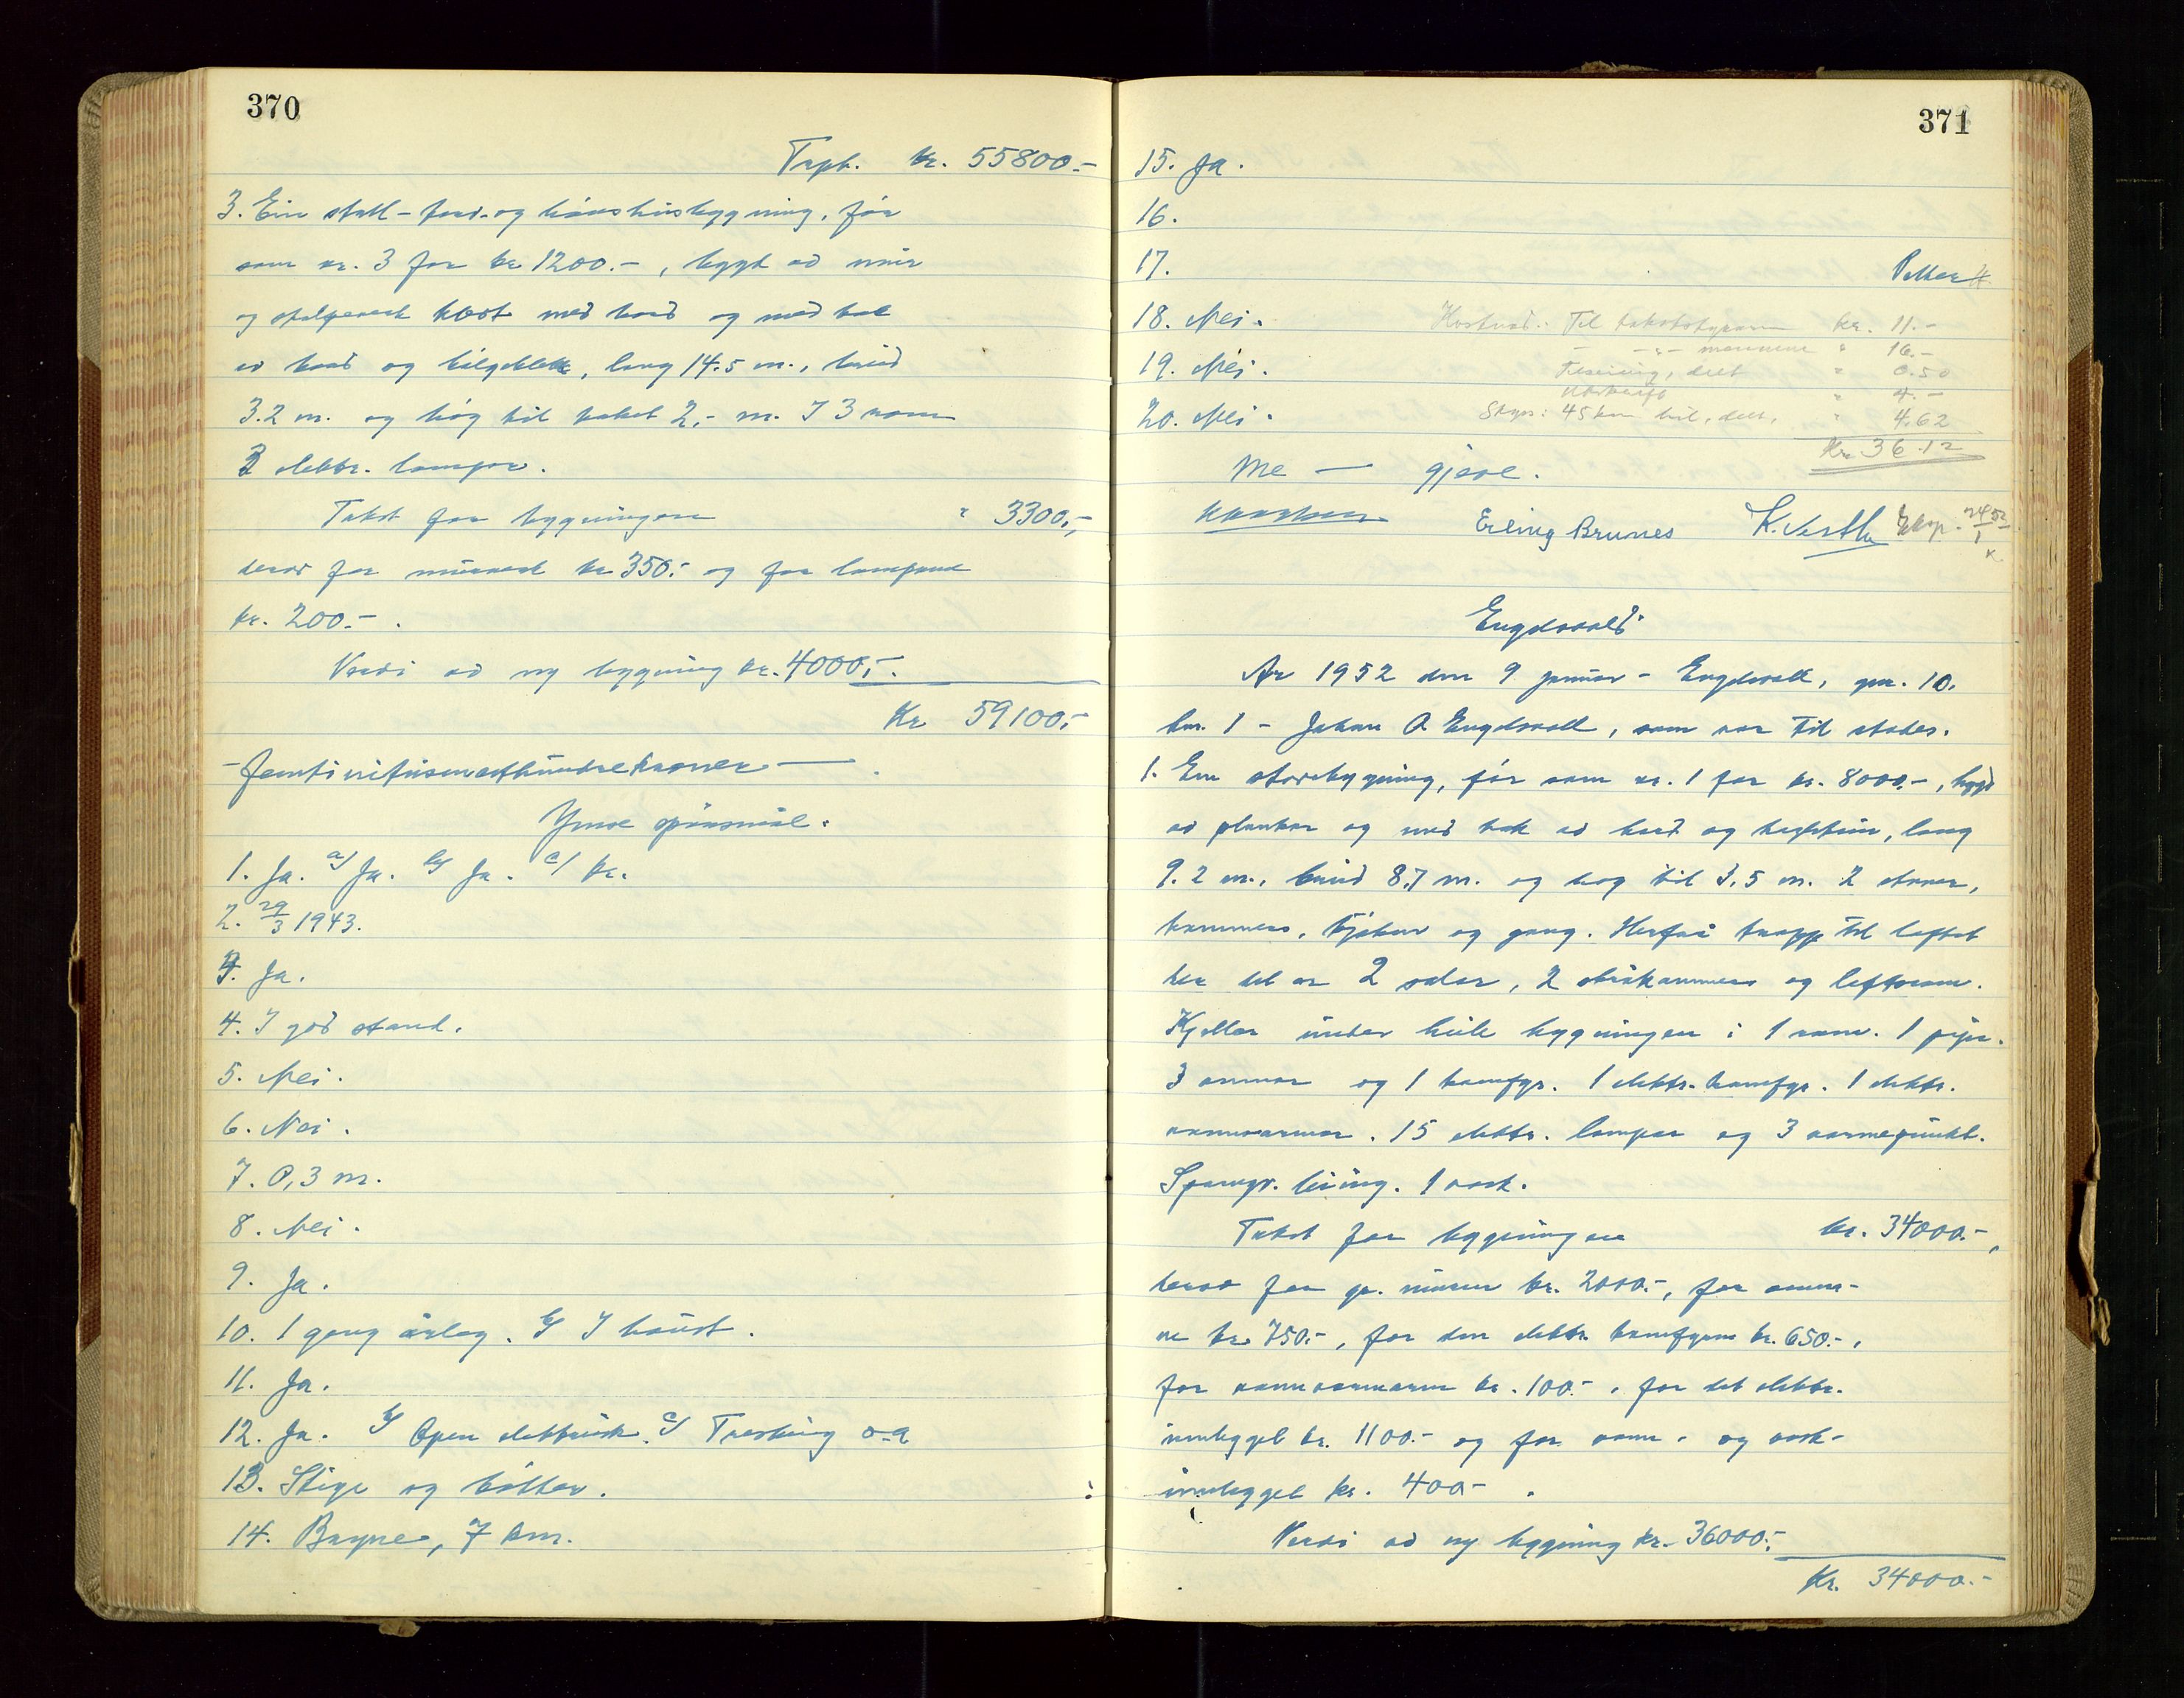 370
Trpt. kr. 55800.-
3. Ein stall- ford- og hønshusbygning, før
som nr. 3 for kr 1200.-, bygt av mur
og stolpeverk kledt med bord og med tak
av bord og bølgeblekk, lang 14.5 m., breid
3.2 m. og høg til taket 2,- m. I 3 rom
3 elektr. lamper.
Takst for bygningen " 3300,-
derav for murverk kr 350.- og for lampene
kr. 200.- .
Verdi av ny bygning kr. 4000,-.
Kr 59100,-
- Femtinitusenetthundrekroner —
Ymse spørsmål.
1. Ja. a/ Ja. b/ Ja. c/ kr.
2. 29/3 1943.
3. Ja.
4. I god stand.
5. Nei.
6. Nei.
7. 0,3 m.
8. Nei.
9. Ja.
10. 1 gang årleg. b/ I haust.
11. Ja.
12. Ja. b/ Open elektrisk. c/ Tresking o.a
13. Stige og bøtter.
14. Bryne, 7 km.
371
15. Ja.
16.
17. Petter H.
18. Nei.
19. Nei.
20. Nei.
Kostnad: Til takststyraren kr. 11.-
- -"- mennene " 16.-
Tilseiing, delt " 0.50
Utskrift " 4.-
Skyss: 45 km bil, delt, " 4.62
Kr. 36.12
Me — gjeve.
Erling Brunes K. Vestly Eksp. 24/1 52
K
Engelsvoll
År 1952 den 9 januar - Engelsvoll, gnr. 10.
bnr. 1 - Johan O Engelsvoll, som var til stades.
1. Ein stovebygning, før som nr. 1 for kr. 8000.-, bygd
av plankar og med tak av bord og takstein, lang
9.2 m., breid 8.7 m. og høg til 3.5 m. 2 stover,
kammers, kjøken og gang. Herfrå trapp til loftet
der det er 2 salar, 2 stråkammers og loftsrom.
Kjellar under heile bygningen i 1 rom. 1 pipe.
3 omnar og 1 komfyr. 1 elektr. komfyr. 1 elektr.
vannvarmar. 15 elektr. lamper og 3 varmepunkt.
1 vask.
Takst for bygningen kr. 34000.-,
derav for gr. muren kr. 2000.-, for omna-
ne kr 750.-, for den elektr. komfyren kr. 650.-,
for vannvarmaren kr. 100.-, for det elektr.
innlegget kr. 1100.- og for vann- og vask-
innlegget kr. 400- .
Verdi av ny bygning kr. 36000.-
Kr. 34000.-